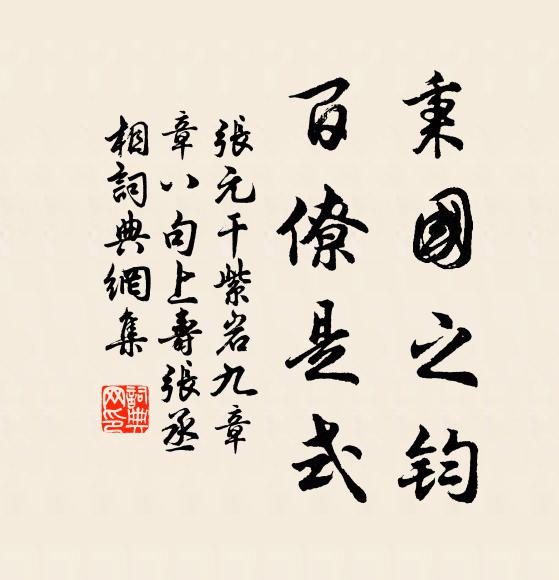 秉國之鈞
百僚是式
張元干紫岩九章
章八句上壽張丞
相詞典網集
詞典網印